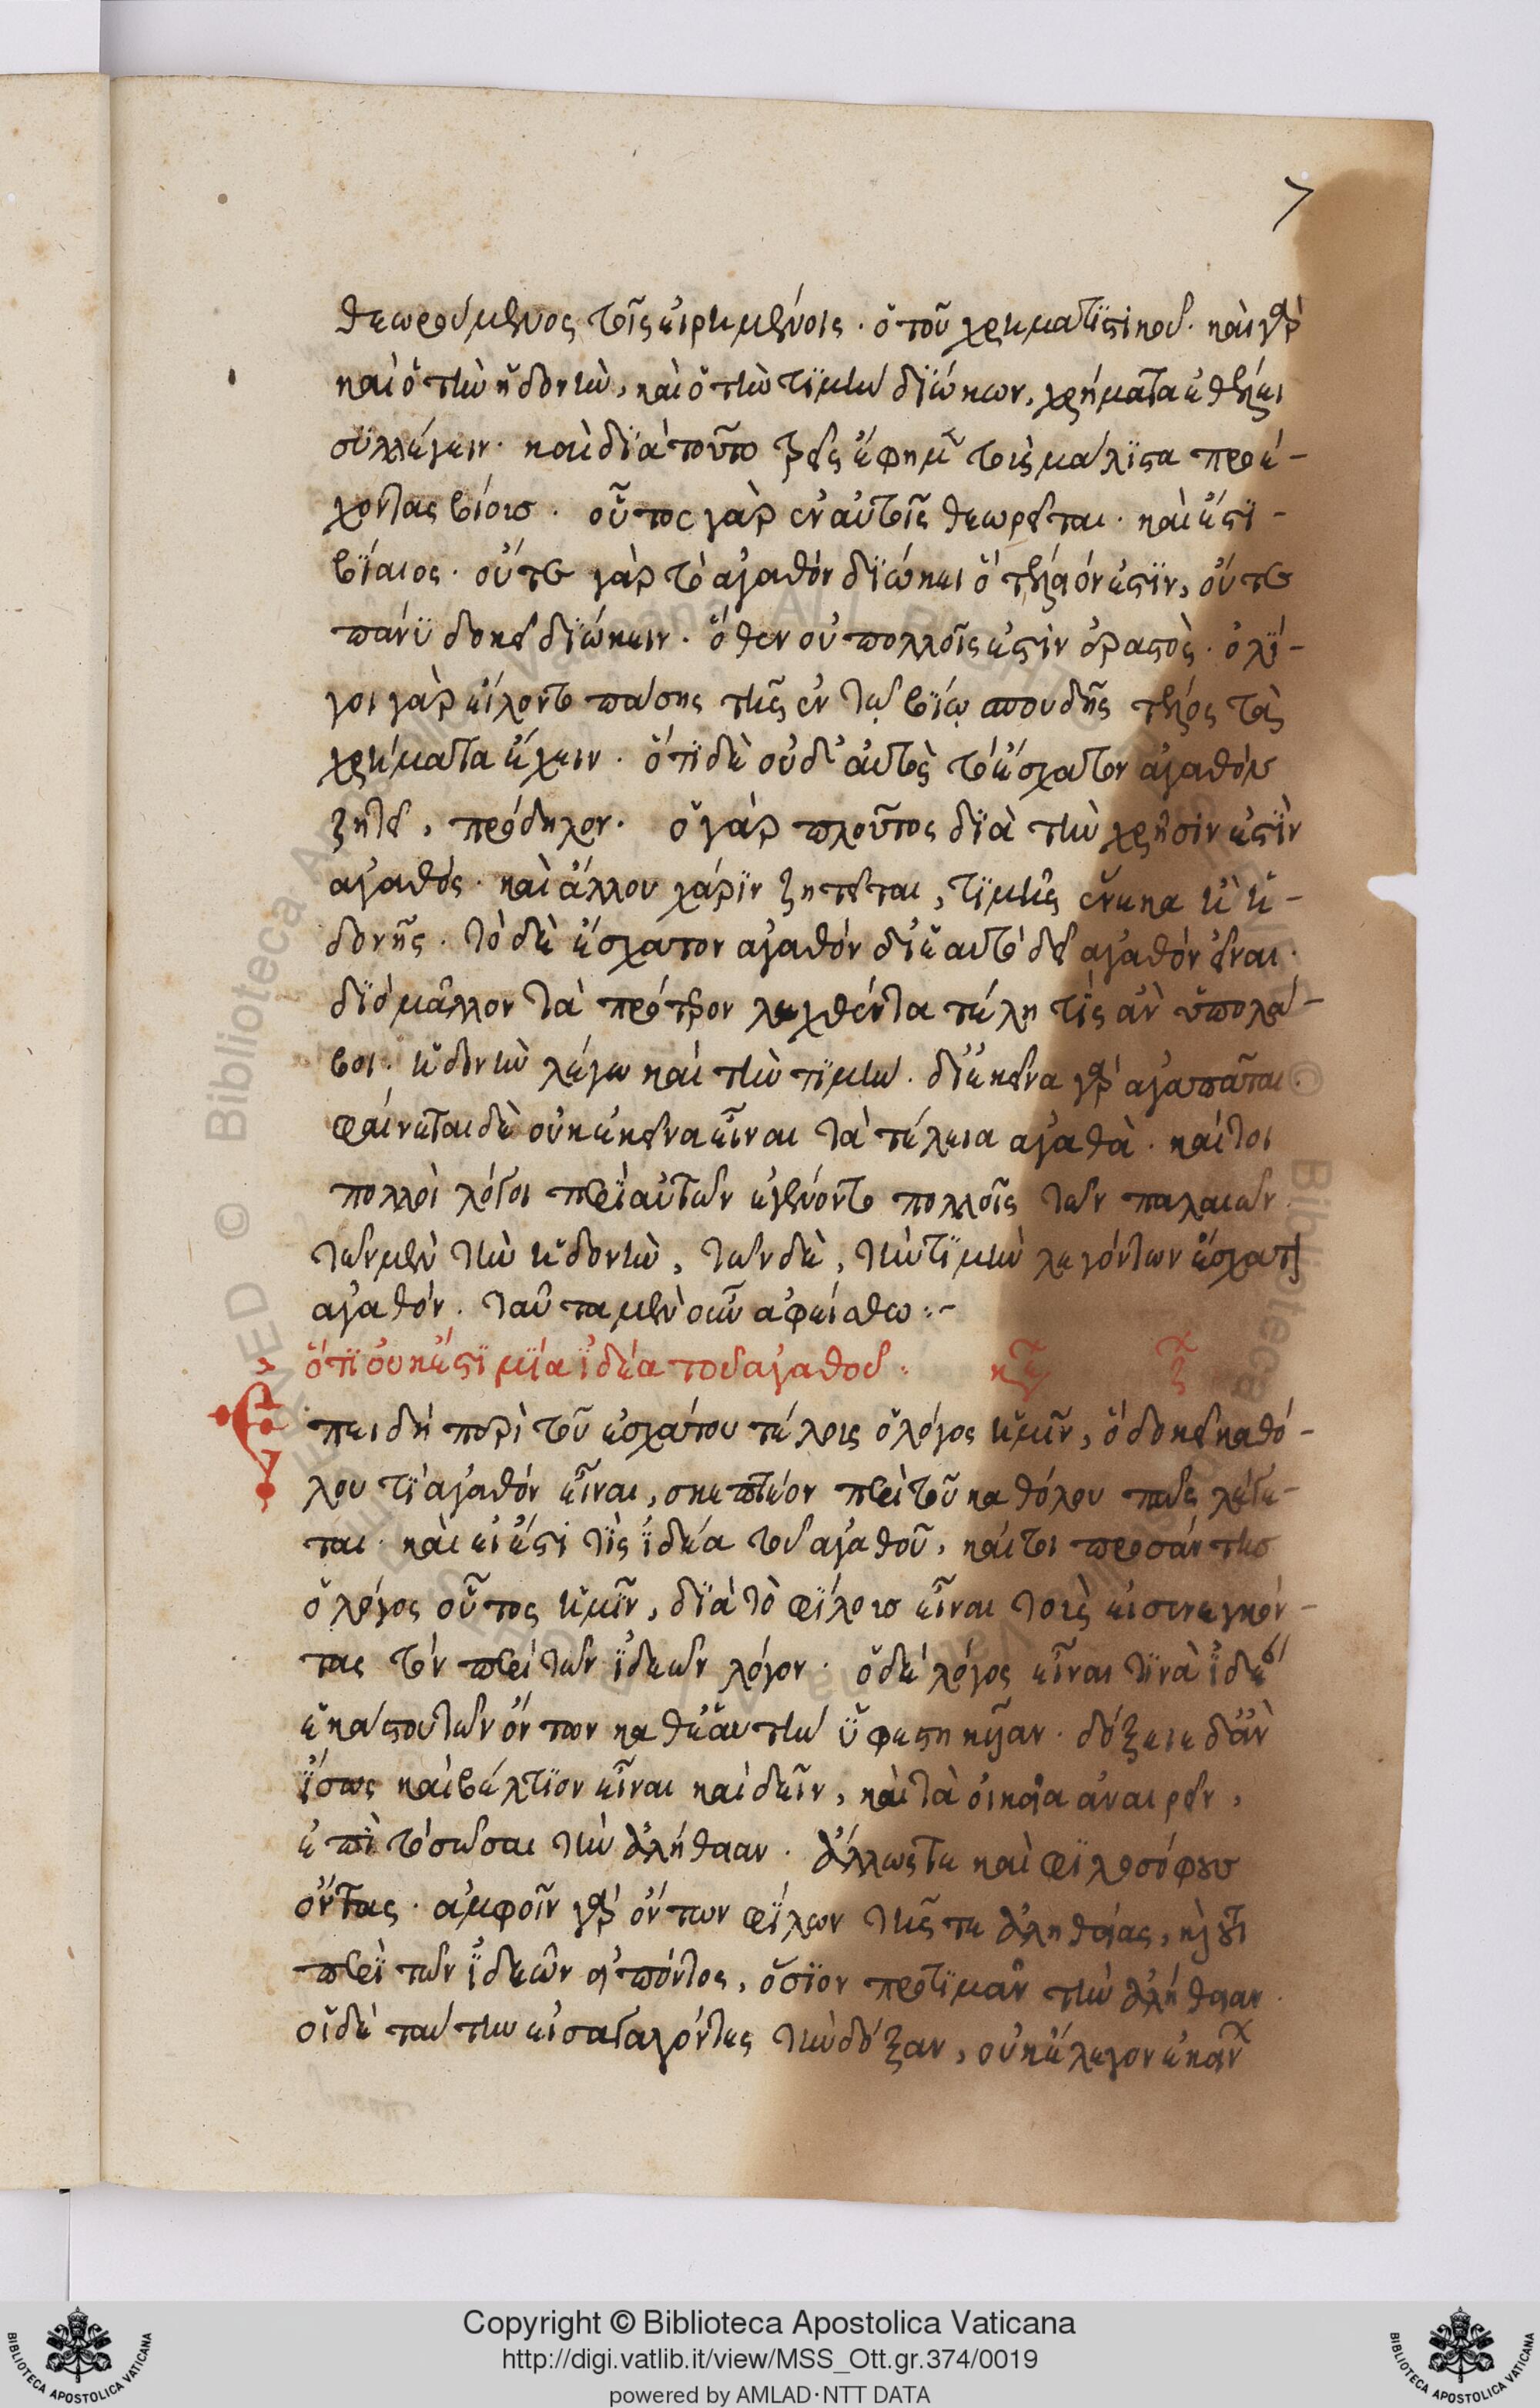 7
θεωρούμενος τοῖς εἰρημένοις · ὁ τοῦ χρηματϊστικοῦ · καὶ γὰρ
καὶ ὁ τὴν ἡδονὴν, καὶ ὁ τὴν τϊμὴν δϊώκων, χρήματα ἐθέλει
συλλέγειν · καὶ δϊὰ τοῦτο τρεῖς ἔφημεν τοὺς μάλϊστα προέ-
χοντας βίους · οὗτος γὰρ ἐν αὐτοῖς θεωρεῖται · καὶ ἔστϊ -
βϊαιος · οὔτε γὰρ τὸ ἀγαθὸν δϊώκει ὃ τέλειόν ἐστϊν, οὔτε
πάνϋ δοκεῖ δϊώκειν · ὅθεν οὐ πολλοῖς ἐστὶν ἐραστὸς · ὀλϊ-
γοι γὰρ εἵλοντο πάσης τῆς ἐν τῷ βϊῳ σπουδῆς τέλος τὰ
χρήματα ἔχειν · ὅτϊ δὲ οὐδ' αὐτὸς τὸ ἔσχατον ἀγαθὸν
ζητεῖ, πρόδηλον · ὁ γὰρ πλοῦτος δϊὰ τὴν χρῆσιν ἐστϊν
ἀγαθός · καὶ ἄλλου χάρϊν ζητεῖται, τϊμῆς ἕνεκα ἢ ἡ-
δονῆς · τὸ δὲ ἔσχατον ἀγαθὸν δι' ἑαυτὸ δεῖ ἀγαθὸν εἶναι ·
δϊὸ μᾶλλον τὰ πρότερον λεχθέντα τέλη τϊς ἂν ὑπολά-
βοι · ἡδονὴν λέγω καὶ τὴν τϊμὴν · δι' ἐκεῖνα γὰρ ἀγαπᾶται ·
φαίνεται δὲ οὐκ ἐκεῖνα εἶναι τὰ τέλεια ἀγαθὰ · καίτοι
πολλοὶ λόγοι περὶ αὐτῶν ἐγένοντο πολλοῖς τῶν παλαιῶν
τῶν μὲν τὴν ἡδονὴν, τῶν δὲ, τὴν τϊμὴν λεγόντων ἔσχατον
ἀγαθόν · ταῦτα μὲν οὖν ἀφείσθω :-
ὅτϊ οὐκ ἔστϊ μϊα ϊδέα τοῦ ἀγαθοῦ ·
Ἐπειδὴ περὶ τοῦ ἐσχάτου τέλους ὁ λόγος ἡμῖν, ὃ δοκεῖ καθό-
λου τϊ ἀγαθὸν εἶναι, σκεπτέον περὶ τοῦ καθόλου πῶς λέγε-
ται · καὶ εἰ ἔστι τϊς ϊδέα τοῦ ἀγαθοῦ, καίτοι προσάντης
ὁ λόγος οὗτος ἡμῖν, δϊὰ τὸ φϊλους εἶναι τοὺς εἰσενεγκόν-
τας τὸν περὶ τῶν ϊδεῶν λόγον · ὁ δὲ λόγος εἶναι τϊνὰ ϊδέαν
ἑκάστου τῶν ὄντων καθ' ἑαυτὴν ὑφεστηκυῖαν · δόξειε δ' ἂν
ἴσως καὶ βέλτϊον εἶναι καὶ δεῖν, καὶ τὰ οἰκεῖα ἀναιρεῖν,
ἐπὶ τὸ σῶσαι τὴν ἀλήθειαν · ἄλλως τε καὶ φϊλοσόφους
ὄντας · ἀμφοῖν γὰρ ὄντων φϊλων τῆς τε ἀληθείας, καὶ τοῦ
περὶ τῶν ϊδεῶν εἰπόντος, ὅσϊον προτϊμᾶν τὴν ἀλήθειαν ·
οἱ δὲ ταύτην εἰσαγαγόντες τὴν δόξαν, οὐκ ἔλεγον εἶναι